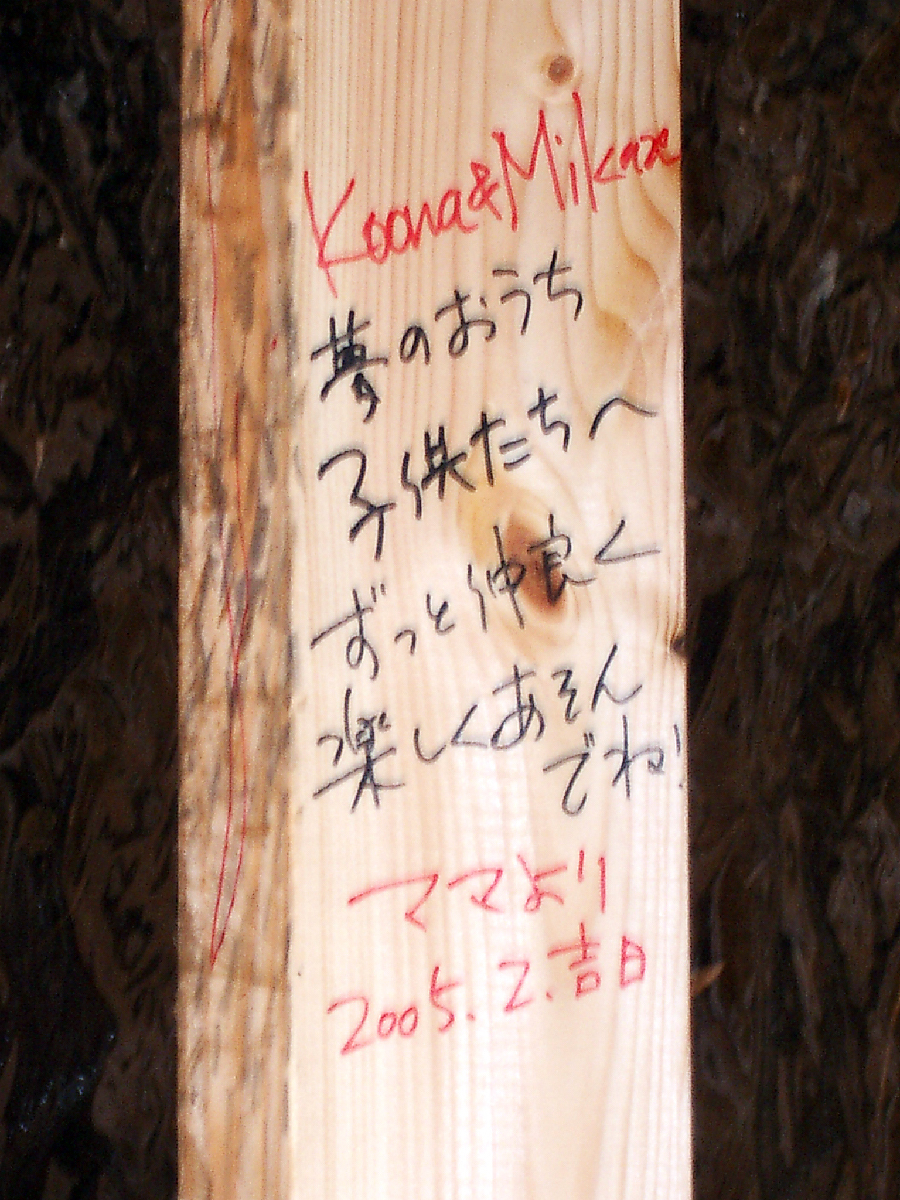 Koona&Mikan
夢のおうち
子供たちへ
ずっと仲良く
楽しくあそん
でね!
ママより
2005.2.吉日